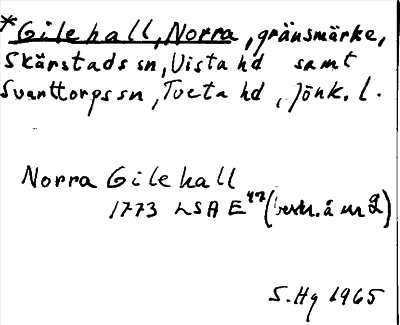 *Gilehall, Norra, gränsmärke,
Skärstads sn, Vista hd samt
Svarttorps sn, Tveta hd, Jönk. l.
Norra Gilehall
1773 LSA E47 (beskr. å nr 2)
S. Hg 1965